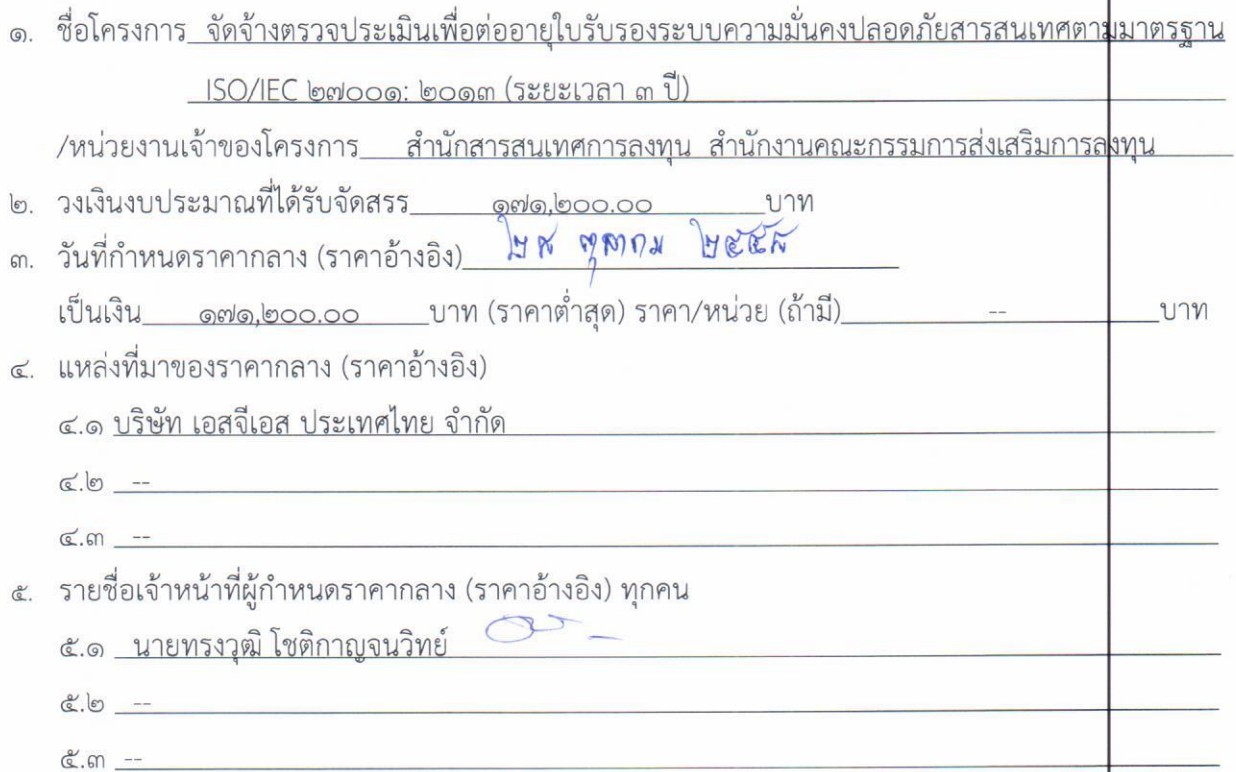 ๑. ชื่อโครงการ จัดจ้างตรวจประเมินเพื่อต่ออายุใบรับรองระบบความมั่นคงปลอดภัยสารสนเทศตามมาตรฐาน
ISO/IEC ๒๗๐๐๑: ๒๐๑๓ (ระยะเวลา ๓ ปี)
/หน่วยงานเจ้าของโครงการ สำนักสารสนเทศการลงทุน สำนักงานคณะกรรมการส่งเสริมการลงทุน
๒. วงเงินงบประมาณที่ได้รับจัดสรร ๑๗๑,๒๐๐.๐๐ บาท
๓. วันที่กำหนดราคากลาง (ราคาอ้างอิง) ตุลาคม
เป็นเงิน ๑๗๑,๒๐๐.๐๐ บาท (ราคาต่ำสุด) ราคา/หน่วย (ถ้ามี) -- บาท
๔. แหล่งที่มาของราคากลาง (ราคาอ้างอิง)
๔.๑ บริษัท เอสจีเอส ประเทศไทย จำกัด
๔.๒ --
๔.๓ --
๕. รายชื่อเจ้าหน้าที่ผู้กำหนดราคากลาง (ราคาอ้างอิง) ทุกคน
๕.๑ นายทรงวุฒิ โชติกาญจนวิทย์
๕.๒ --
๕.๓ --